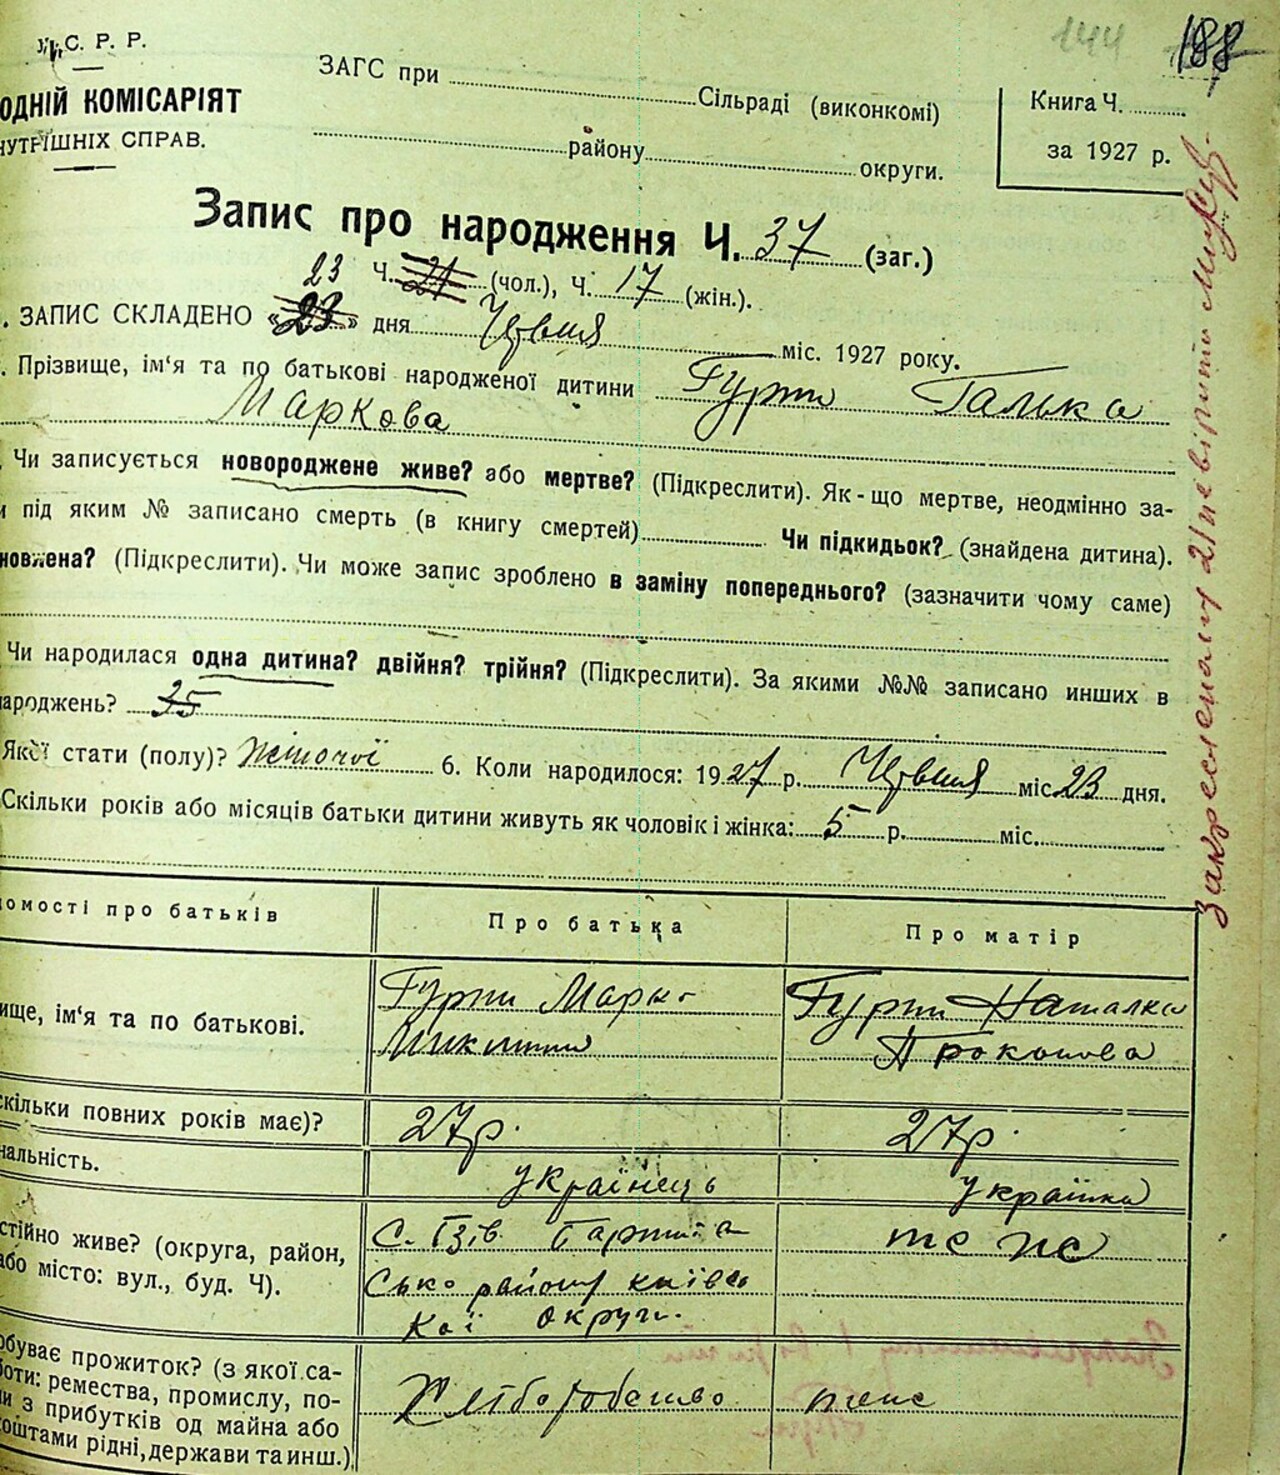 144 188
У.С. Р. Р.
ОДНІЙ КОМІСАРІЯТ
НУТРІШНІХ СПРАВ.
ЗАГС при ........ Сільраді (виконкомі)
........ району ........ округи.
Книга Ч. ........
за 1927 р.
Запис про народження Ч. 37 (заг.)
23 Ч. 21 (чол.), Ч. 17 (жін.).
. ЗАПИС СКЛАДЕНО «23» дня Червня міс. 1927 року.
. Прізвище, ім'я та по батькові народженої дитини Гурти Галька
Маркова
. Чи записується новороджене живе? або мертве? (Підкреслити). Як-що мертве, неодмінно за-
и під яким № записано смерть (в книгу смертей) ........ Чи підкидьок? (знайдена дитина).
новлена? (Підкреслити). Чи може запис зроблено в заміну попереднього? (зазначити чому саме)
Чи народилася одна дитина? двійня? трійня? (Підкреслити). За якими №№ записано инших в
народжень? 25
Якої стати (полу)? Жіночої 6. Коли народилося: 1927 р. Червня міс. 23 дня.
Скільки років або місяців батьки дитини живуть як чоловік і жінка: 5 р. ........ міс. ........
домості про батьків
Про батька
Про матір
ище, ім'я та по батькові.
Гурти Марко
Микити
Гурти Наталка
Прокопова
скільки повних років має)?
27 р.
27 р.
нальність.
українець
українка
стійно живе? (округа, район,
або місто: вул., буд. Ч).
С.
Сько району київсь
кої округи.
те же
обуває прожиток? (з якої са-
боти: ремества, промислу, по-
ли з прибутків од майна або
коштами рідні, держави та инш.)
Хліборобство
теж
закресленому 21 не вірити